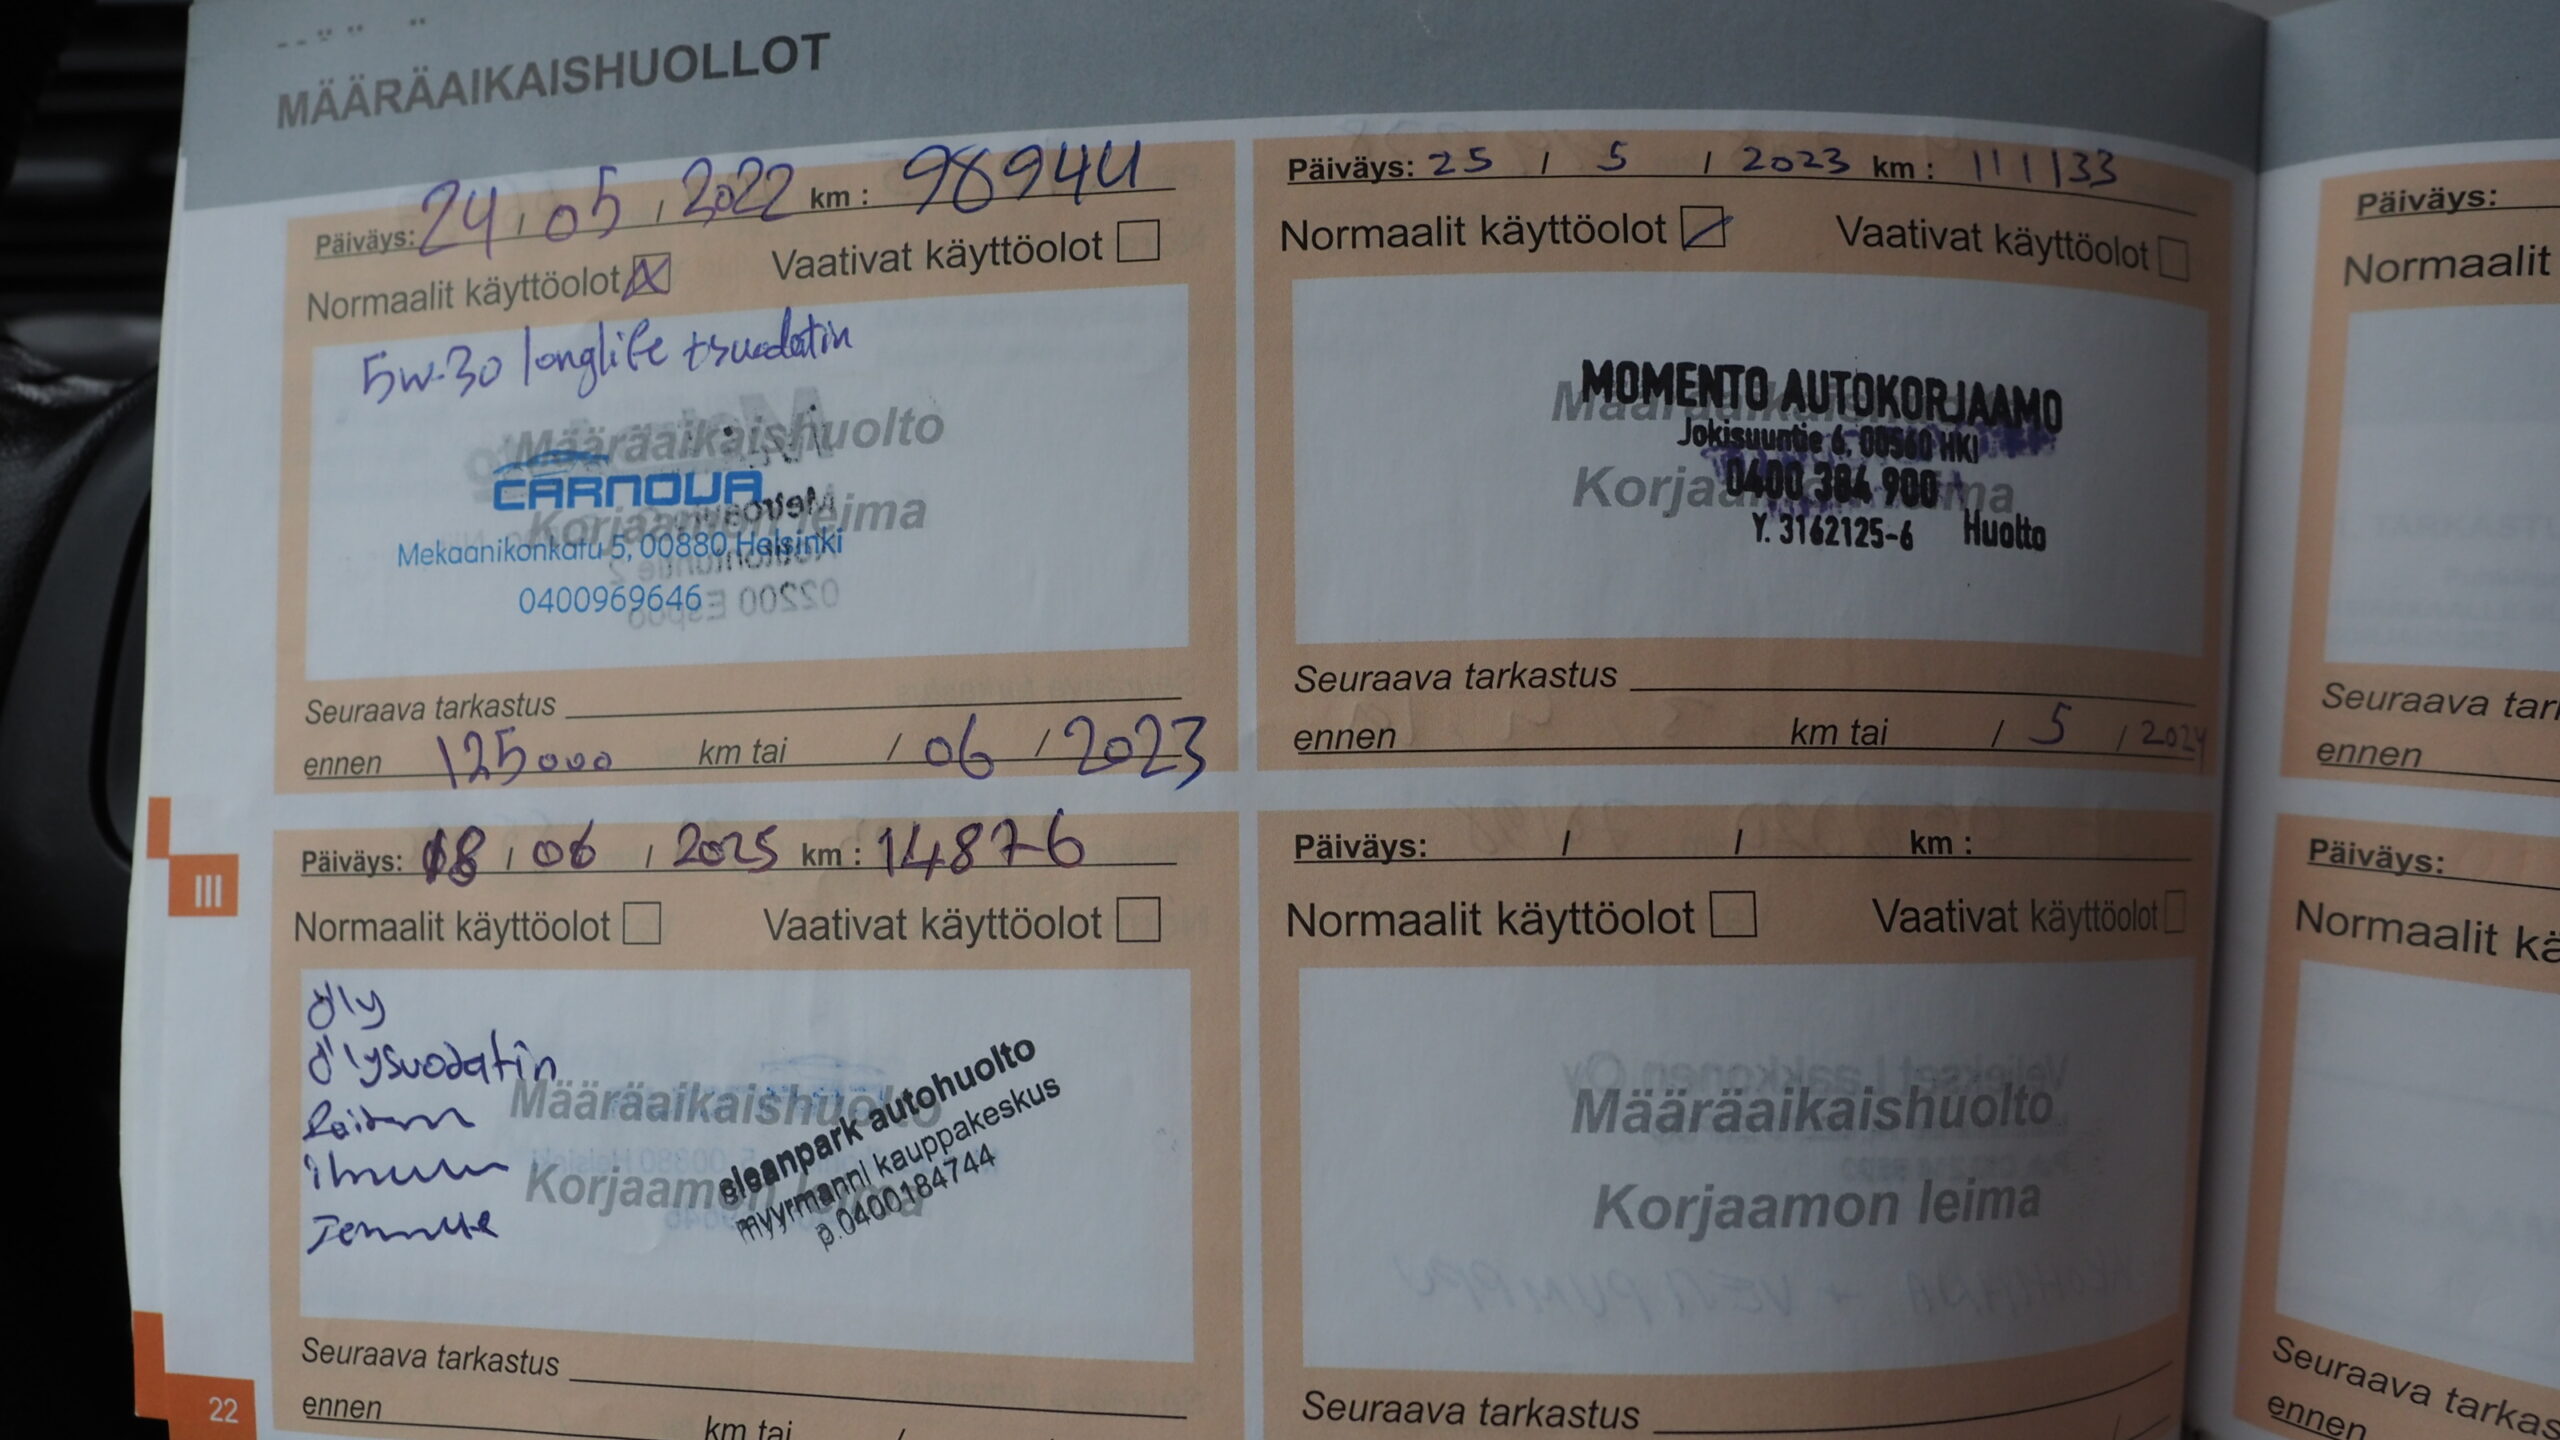 MÄÄRÄAIKAISHUOLLOT
Päiväys: 24 / 05 / 2022 km : 98944
Normaalit käyttöolot Vaativat käyttöolot
5w-30 longlife
Määräaikaishuolto
CARNOVA
Korjaamon leima
Mekaanikonkatu 5, 00880 Helsinki
0400969646
02200 Espoo
Seuraava tarkastus
ennen 125000 km tai / 06 / 2023
Päiväys: 25 / 5 / 2023 km : 111133
Normaalit käyttöolot Vaativat käyttöolot
MOMENTO AUTOKORJAAMO
Jokisuuntie 6, 00560 HKI
0400 384 900
Y. 3162125-6 Huolto
Seuraava tarkastus
ennen km tai / 5 / 2024
Päiväys: 18 / 06 / 2025 km : 14876
Normaalit käyttöolot Vaativat käyttöolot
öly
ölysuodatin
Määräaikaishuolto
Korjaamon leima
cleanpark autohuolto
myyrmanni kauppakeskus
p.0400184744
Seuraava tarkastus
ennen km tai /
Päiväys: / / km :
Normaalit käyttöolot Vaativat käyttöolot
Määräaikaishuolto
Korjaamon leima
Seuraava tarkastus
Päiväys:
Normaalit
Seuraava tark
ennen
Päiväys:
Normaalit kä
Seuraava tarkas
ennen
III
22